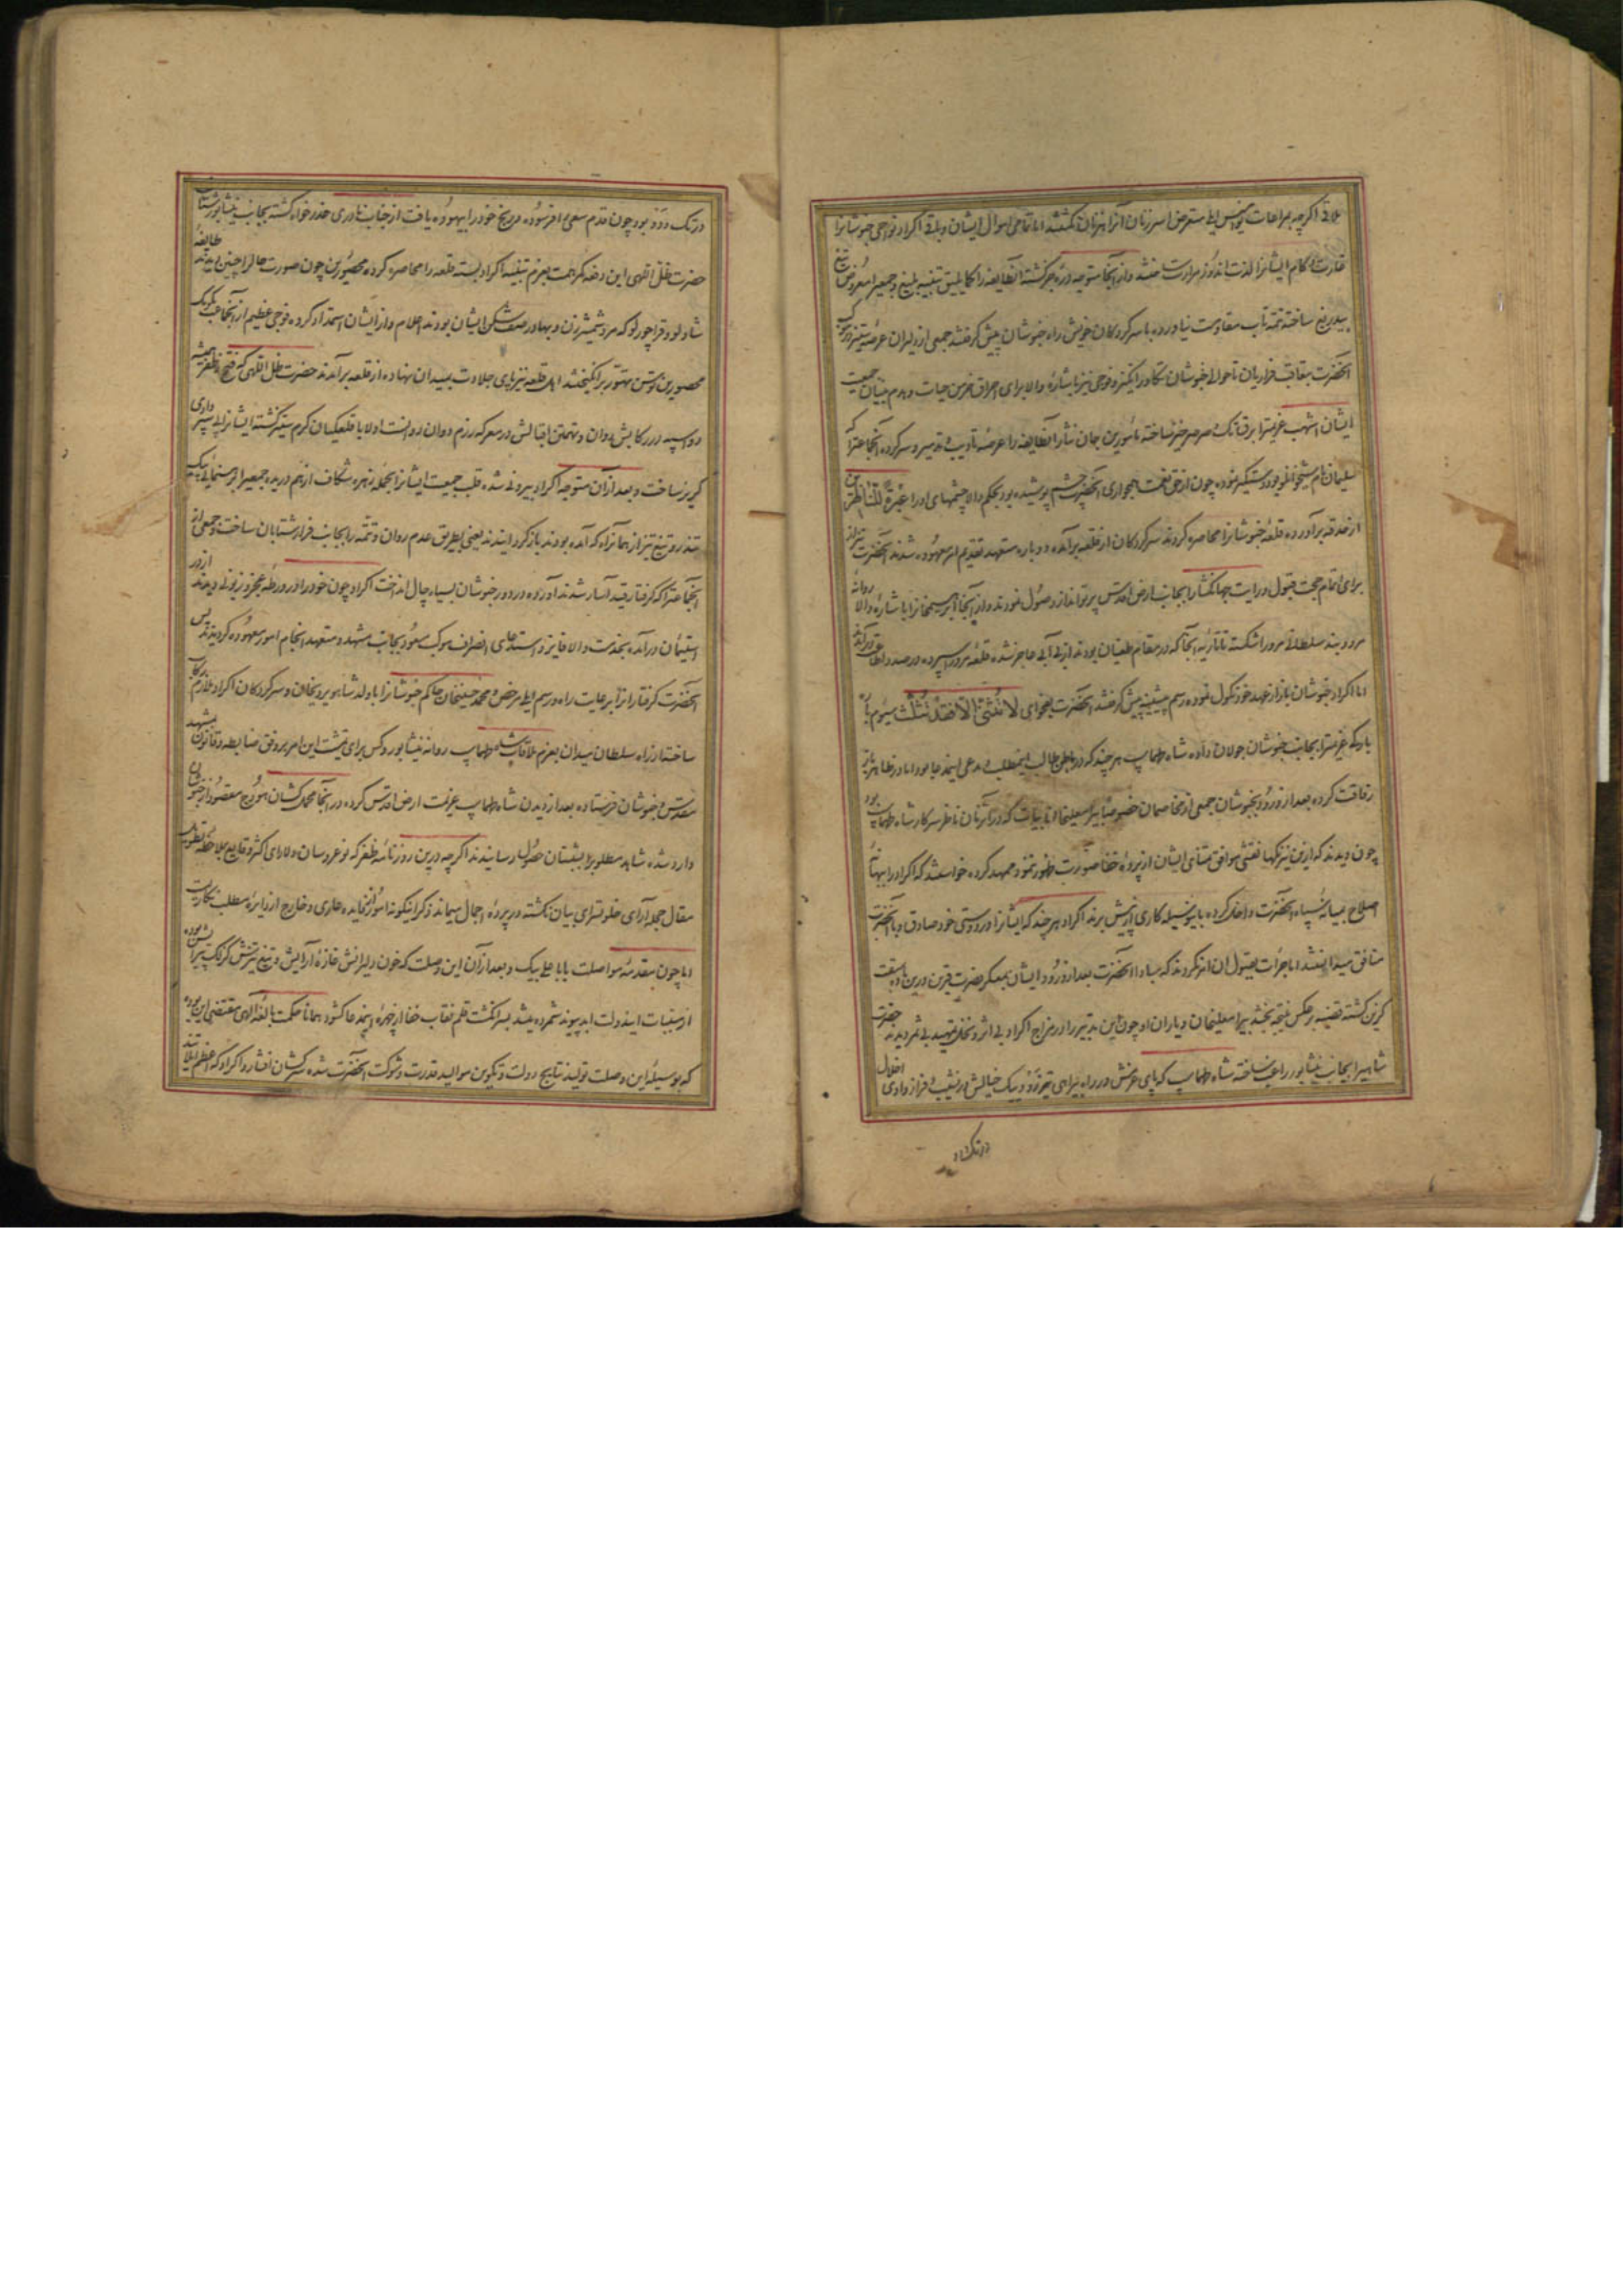 ملاقی اگرچه بمراعات ناموس ایلی متعرض اسر زنان آنها نکشتند اما تمامی اموال ایشان و باقی اکراد نواحی خبوشانرا
غارت و کام ایشانرا لذت اندوز مرارت و از آنجا متوجه دره جز کشته آنطایفه را کما یلیق تنبیه بلیغ و جمعیرا معروض تیغ
بیدریغ ساخته تتمه تاب مقاومت نیاورده با سرکردکان خویش راه خبوشان پیش کرفتند جمعی از دلیران عرصه ستیز در رکاب
آنحضرت بتعاقب فراریان تا حوالی خبوشان تکاور انکیز و فوجی نیز باشاره والا برای احراق خرمن حیات و هدم بنیان جمعیت
ایشان اشهب عزیمترا برق تک و صرصر خیز ساخته مأمورین جان نثار آنطایفه را عرضه تادیب و تدمیر و سرکرده آنجماعترا که
سلیمان نام شیخوانلو بود دستکیر نموده چون از حق نعمت همجواری آنحضرت چشم پوشیده بود بحکم والا چشمهای او را عبرة للناظرین
از حدقه برآورده قلعه خبوشانرا محاصره کردند سرکردکان از قلعه برآمده دوباره متعهد تقدیم امر معهوده شدند آنحضرت نیز از
برای اتمام حجت قبول و رایت جهانکشا را بجانب ارض اقدس پرتو انداز وصول نمودند و از آنجا ابراهیمخانرا باشاره والا روانه
مرو و بند سلطانی مرو را شکسته تاتاریه آنجا که در مقام طغیان بودند از بی آبی عاجز شده قلعه مرو را سپرده در صدد اطاعت درآمدند
اما اکراد خبوشان باز از عهد خود نکول نموده رسم پیشینه پیش کرفتند آنحضرت بفحوای لا تثنی الا فقد تثلث سیوم باره
باره عزیمترا بجانب خبوشان جولان داده شاه طهماسپ هر چند که در باطن طالب اینمطلب و مدعی این مدعا بود اما در ظاهر باز
رفاقت کرده بعد از ورود بخبوشان جمعی از مخاصمان خصوصا پیر اسمعیلخان بیات که در آنزمان ناظر سرکار شاه طهماسپ بود
چون دیدند که از این نیرنکها نقشی موافق متنای ایشان از پرده خفا صورت ظهور ننمود ممهد کرده خواستند که اکراد را ببهانه
اصلاح بمیانه سپاه آنحضرت داخل کرده باینوسیله کاری از پیش برند اکراد هر چند که ایشانرا در دوستی خود صادق و با آنحضرت
منافق میدانستند اما جرات بقبول آن امر نکردند که مبادا آنحضرت بعد از ورود ایشان بمعسکر نصرت قرین درین باب سبقت
کزین کشته قضیه بر عکس نتیجه بخشد پیر اسمعیلخان و یاران او چون این تدبیر را در مزاج اکراد بی اثر و نخل تمهید بی ثمر دیدند حضرت
شاهیرا بجانب نیشابور راغب ساخته شاه طهماسپ که پای عزمش در راه بیراهی تیز رو و پیک خیالش در نشیب و فراز وادی اخلال
در تک و دو
در تک و دو بود چون قدم سعی را فرسوده و رنج خود را بیهوده یافت از جناب نادری عذر خواه کشته بجانب نیشابور شتافت
حضرت ظل اللهی این دفعه کمر همت بعزم تنبیه اکراد بسته قلعه را محاصره کرده محصورین چون صورت حال را چنین دیدند طایفه
شادلو و قراچورلو که مرد شمشیر زن و بهادر صف شکن ایشان بودند اعلام و از ایشان استمداد کرده فوجی عظیم از آنجا بکومک
محصورین توسن تهور برانکیختند اهل قلعه نیز پای جلادت بمیدان نهاده از قلعه برآمدند حضرت ظل اللهی که فتح و ظفر همیشه
دو اسپه در رکابش دوان و تهمتن اقبالش در معرکه رزم دوان دوانست اولا با قلعکیان کرم ستیز کشته ایشانرا پی سپر وادی
کریز ساخت و بعد از آن متوجه اکراد بیرونی شده قلب جمعیت ایشانرا بحمله زهره شکاف از هم دریده جمعیرا برهنمائی پیک
تندرو تیغ تیز از همان راه که آمده بودند باز کردانیدند یعنی بطریق عدم روان و تتمه را بجانب فرار شتابان ساخت و جمعی از
آنجماعترا که کرفتار قید آسار شدند آورده در دور خبوشان بسیاه چال انداخت اکراد چون خود را در ورطه عجز و زبونی دیدند از در
استیمان درآمده بخدمت والا فایز و استدعای انصراف موکب مسعود بجانب مشهد و متعهد انجام امور معهوده کردیدند پس
آنحضرت کرفتارانرا برعایت راه و رسم ایلی مرخص و محمد حسینخان حاکم خبوشانرا با ولد شاهویردیخان و سرکردکان اکراد ملازم رکاب
ساخته از راه سلطان میدان بعزم ملاقات شاه طهماسپ روانه نیشابور و کس برای تمشیت این امر بر وفق ضابطه و قانون بمشهد
مقدس و خبوشان فرستاده بعد از دیدن شاه طهماسپ عزیمت ارض اقدس کرده در آنجا محمل کشان هودج مقصود از خبوشان
وارد شده شاهد مطلوب را بشبستان حصول رسانیدند اکرچه درین روزنامه ظفر که نو عروسان دلارای اکثر وقایع بملاحظه تطویل
مقال جمله آرای خلوتسرای بیان نکشته در پرده اجمال میماند ذکر اینکونه امور از فایده عاری و خارج از دایره مطلب نکاریست
اما چون مقدمه مواصلت بابا علی بیک و بعد از آن این وصلت که خون دلیرانش غازه آرایش و تیغ تیزش کزلک پیرایش بود
از مسببات ایندولت ابد پیوند شمرده میشد بسرانکشت قلم نقاب خفا از چهره اینمدعا کشود همانا حکمت بالغه الهی مقتضی این بوده
که بوسیله این وصلت تولید نتایج دولت و تکوین موالید قدرت و شوکت آنحضرت شده سرکشان افشار و اکراد که اعظم ایلاتند